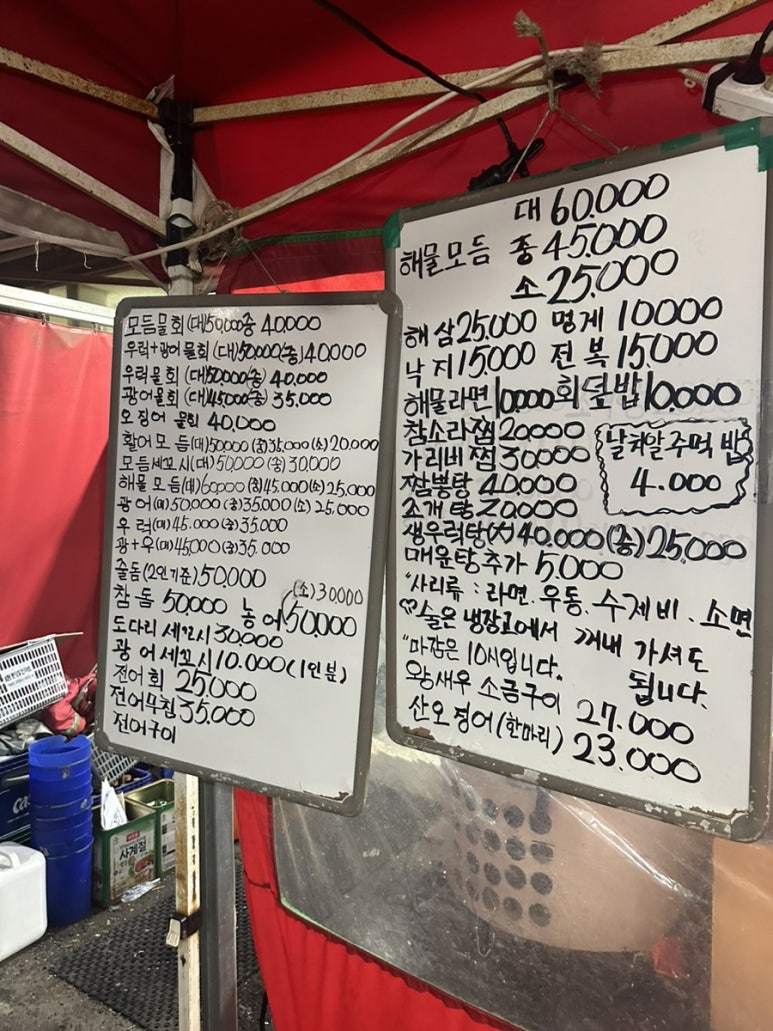 모듬물회(대)50,000중 40,000
우럭+광어물회 (대)50,000(중)40,000
우럭물회 (대)50,000(중) 40,000
광어물회 (대)45,000(중) 35,000
오징어 물회 40,000
활어모듬(대)50,000(중)35,000(소)20,000
모듬세꼬시(대)50,000(중)30,000
해물모듬(대)60,000(중)45,000(소)25,000
광어(대)50,000(중)35,000(소)25,000
우럭(대)45,000(중)35,000
광+우(대)45,000(중)35,000
줄돔(2인기준)50,000
(소)30000
참돔 50,000 농어50,000
도다리세꼬시30,000
광어세꼬시10,000(1인분)
전어회 25,000
전어무침35,000
전어구이
대 60.000
해물모듬 중 45.000
소 25.000
해삼25.000 멍게 10000
낙지15.000 전복15.000
해물라면10.000회덮밥10.000
참소라찜20000
가리비찜30000
날치알주먹밥
4.000
짬뽕탕 40.000
조개탕 20.000
생우럭탕(大)40.000(중)25,000
매운탕추가 5.000
"사리류 : 라면.우동.수제비.소면
♡술은 냉장고에서 꺼내 가셔도
됩니다.
"마감은 10시입니다.
왕새우 소금구이 27.000
산오징어(한마리) 23.000
사계절